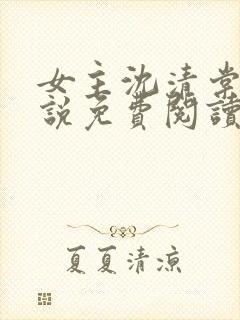 女主沈清棠
說免費閱讀
夏夏清涼